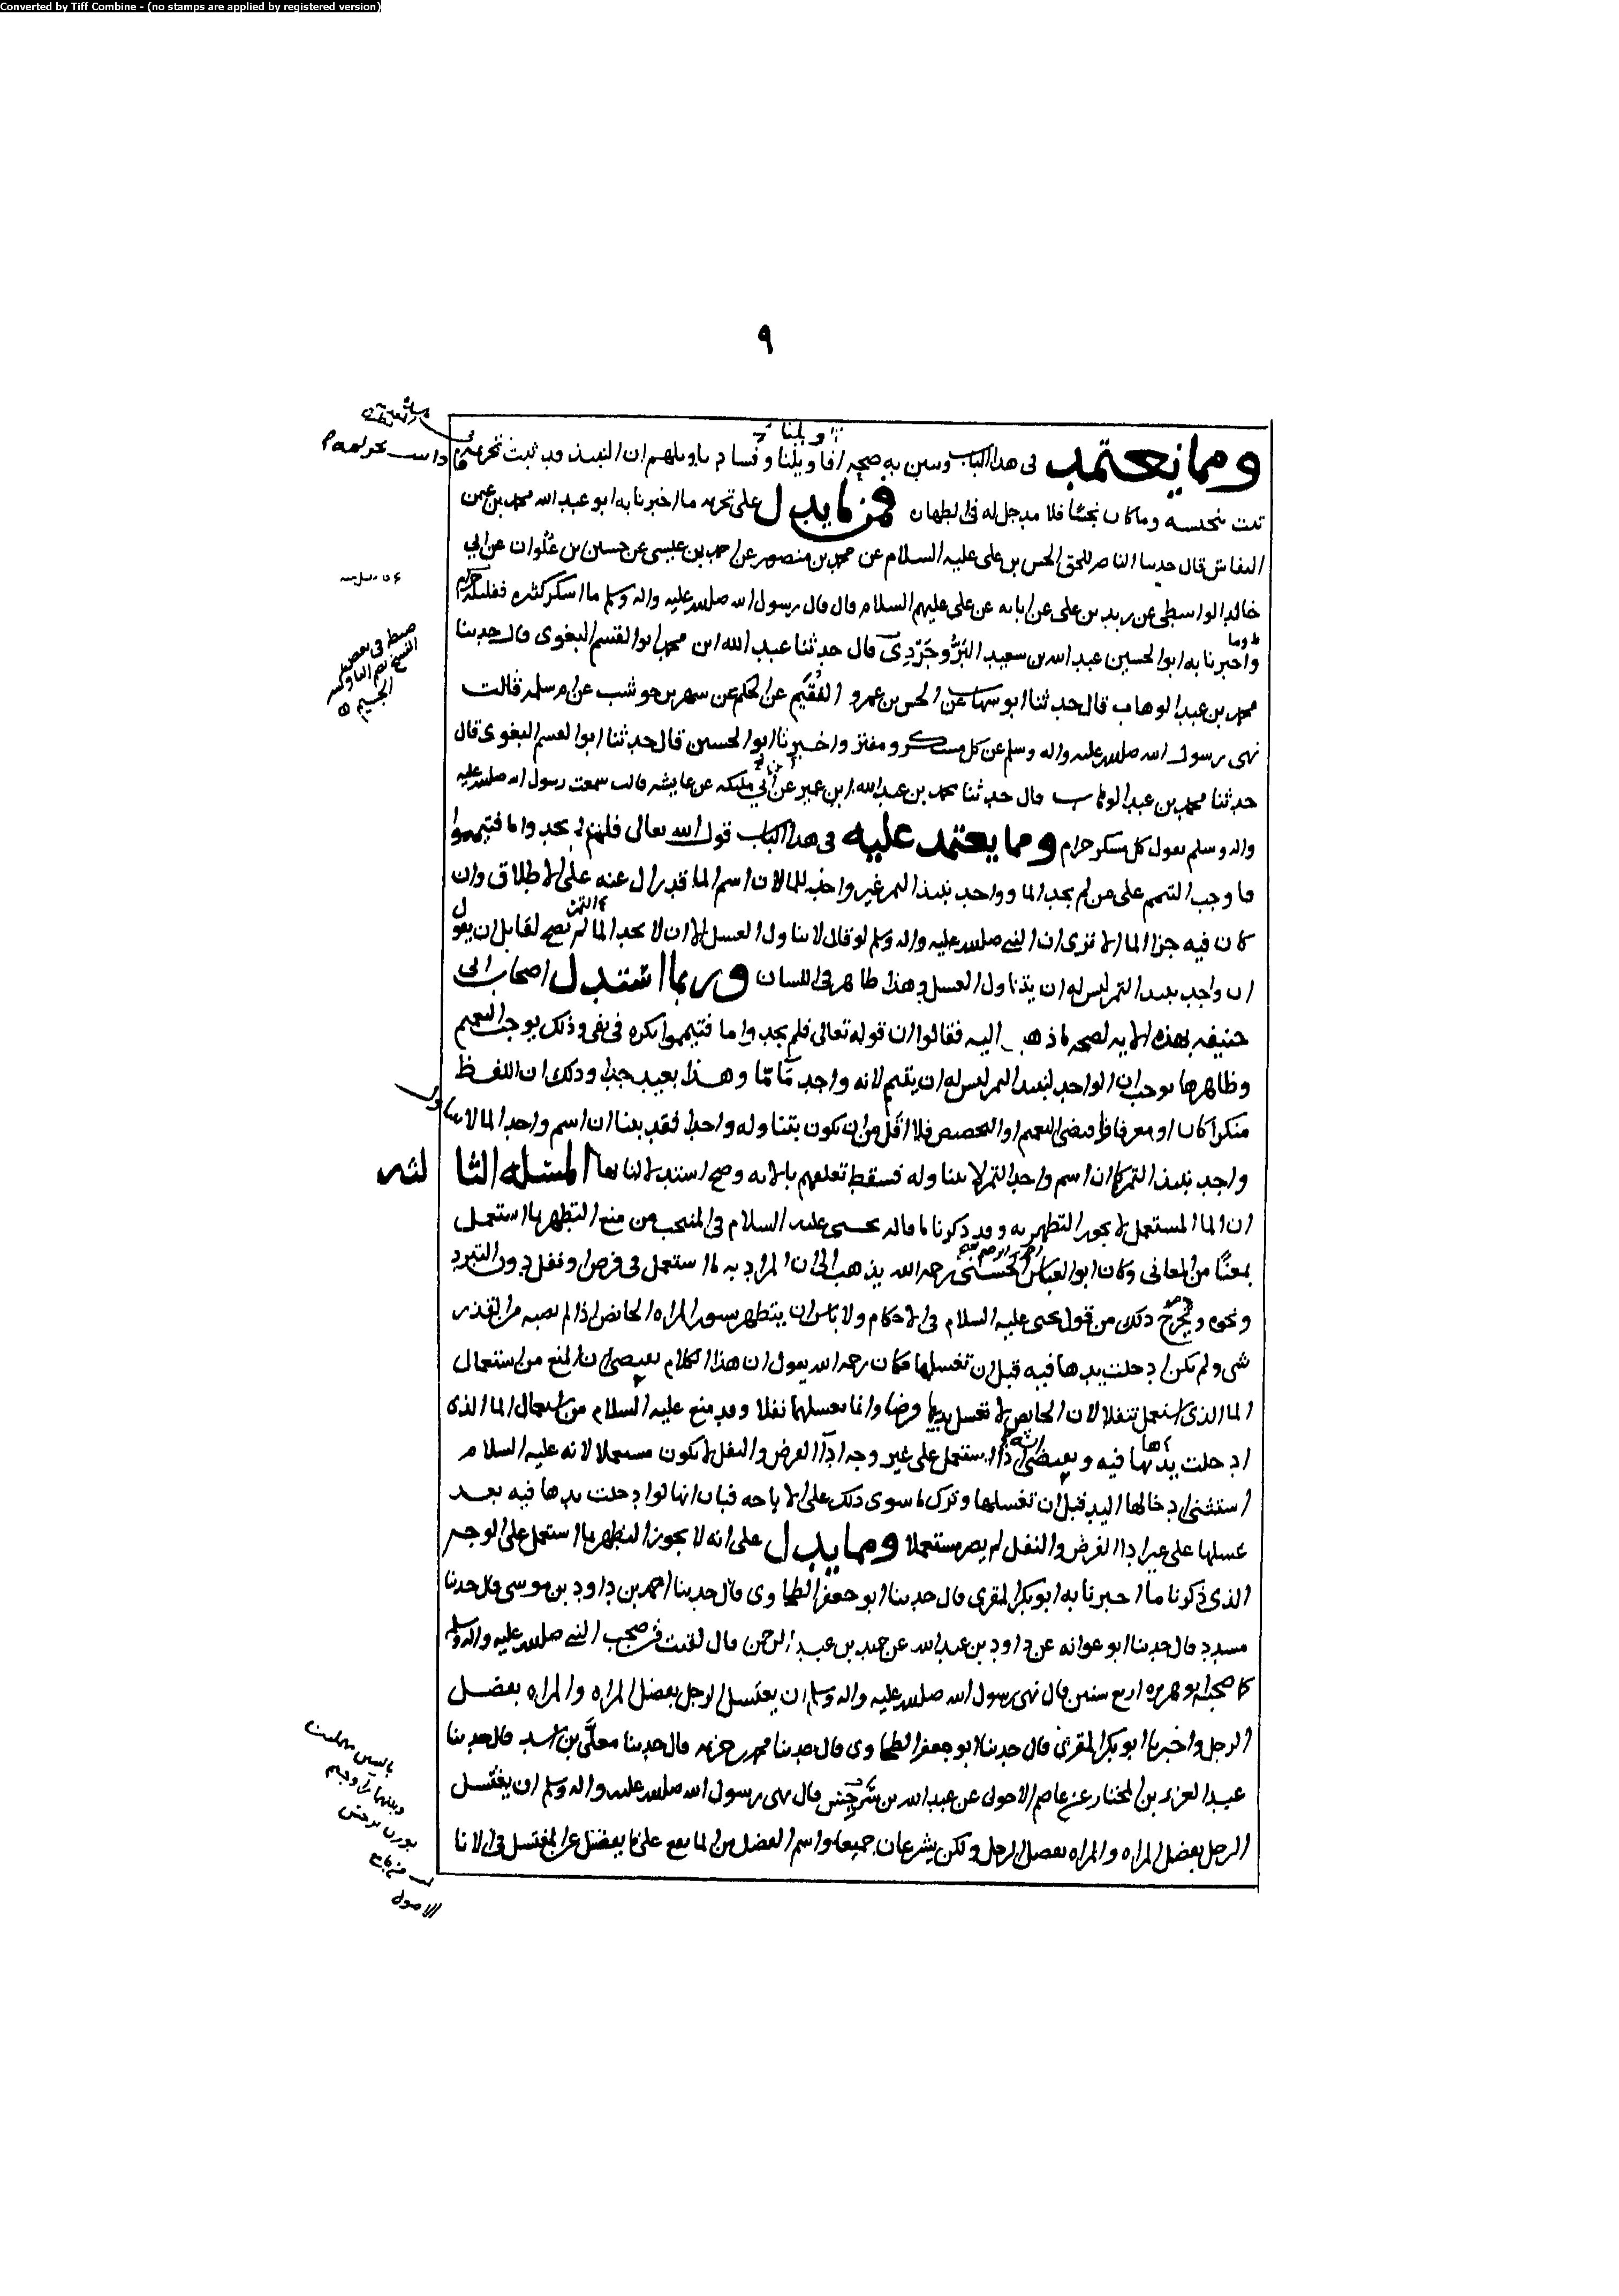 Converted by Tiff Combine - (no stamps are applied by registered version)
٩
ومما نعتمد في هذا الباب وسين به صحه اقاويلنا وفساد ان النبيذ قد ثبت تحريمه
نجسا فلا مدخل له في الطهاره فمما يدل على تحريمه ما اخبرنا به ابو عبد الله محمد بن عثمن
النقاش قال حدسا الناصر للحق الحسن بن على عليه السلام عن محمد بن منصور عن احمد بن عيسى عن حسين بن علوان عن ابي
خالد الواسطى عن زيد بن على عن ابايه عن على عليهم السلام قال قال رسول الله صلى الله عليه واله وسلم ما اسكر كثيره فقليله حرام
واخبرنا به ابو الحسين عبد الله بن سعيد البروجردى قال حدثنا عبد الله ابن محمد ابو القسم البغوى قال حدثنا
محمد بن عبد الوهاب قال حدثنا ابو شهاب عن الحسن بن عمرو الفقيمي عن الحكم عن شهر بن حوشب عن ام سلمه قالت
نهى رسول الله صلى الله عليه واله وسلم عن كل مسكر ومفتر واخبرنا ابو الحسين قال حدثنا ابو القسم البغوى قال
حدثنا محمد بن عبد الوهاب قال حدثنا محمد بن عبد الله ابن عمير عن ابي مليكه عن عايشه قالت سمعت رسول الله صلى الله عليه
واله وسلم يقول كل مسكر حرام ومما يعتمد عليه في هذا الباب قول الله تعالى فلم تجدوا ما فتيمموا
فاوجب التيمم على من لم يجد الما وواجد نبيذ التمر غير واجد للما لان اسم الما قد زال عنه على الاطلاق وان
كان فيه جزا الما الا ترى ان النبي صلى الله عليه واله وسلم لو قال لا يتناول العسل الا ان لا يجد الما لم يصح لقايل ان يقول
ان واجد نبيذ التمر ليس له ان يتناول العسل وهذا ظاهر في اللسان وربما استدل اصحاب ابي
حنيفه بهذه الايه لصحه ما ذهب اليه فقالوا ان قوله تعالى فلم تجدوا ما فتيمموا نكره في نفي وذلك يوجب التعميم
وظاهرها يوجب ان الواجد لنبيذ التمر ليس له ان يتيمم لانه واجد مآ مّا وهذا بعيد جدا وذلك ان اللفظ
منكرا كان او معرفا اذا اقتضى التعميم او التخصيص فلا اقل من ان يكون يتناوله واحدا فقد بينا ان اسم واجد الما لا يتناول
واجد نبيذ التمر كما ان اسم واجد التمر لا يتناوله فسقط تعلقهم بالايه وصح استدلالنا بها المسئله الثالثه
ان الما المستعمل لا يجوز التطهر به وقد ذكرنا ما قاله يحيى عليه السلام في المنتخب من منع التطهر بما استعمل
بمعنًا من المعانى وكان ابو العباس الحسنى رحمه الله يذهب الى ان المراد به ما استعمل في فرض او نفل دون التبرد
ونحوه ويخرج ذلك من قول يحيى عليه السلام في الاحكام ولا باس ان يتطهر بسور المراه الحائض اذا لم يصبه من القذر
شى ولم تكن ادخلت يدها فيه قبل ان تغسلها فكان رحمه الله يقول ان هذا الكلام يقتضى ان المنع من استعمال
الما الذى استعمل تنفلا لان الحايض لا تغسل يديها فرضا وانما تغسلها نفلا وقد منع عليه السلام من استعمال الما الذى
ادخلت يدها فيه ويقتضى انه اذا استعمل على غير وجه ادآ الفرض والنفل لا يكون مستعملا لانه عليه السلام
استثنى ادخالها اليد قبل ان تغسلها وترك ما سوى ذلك على الاباحه فبان انها لو ادخلت يدها فيه بعد
غسلها على غير ادا الفرض والنفل لم يصر مستعملا ومما يدل على انه لا يجوز التطهر بما استعمل على الوجه
الذى ذكرنا ما اخبرنا به ابو بكر المقرى قال حدثنا ابو جعفر الطحاوى قال حدثنا احمد بن داود بن موسى قال حدثنا
مسدد قال حدثنا ابو عوانه عن داود بن عبد الله عن حميد بن عبد الرحمن قال لقيت من صحب النبي صلى الله عليه واله وسلم
كما صحبه ابو هريره اربع سنين قال نهى رسول الله صلى الله عليه واله وسلم ان يغتسل الرجل بفضل المراه والمراه بفضل
الرجل واخبرنا ابو بكر المقرى قال حدثنا ابو جعفر الطحاوى قال حدثنا محمد بن خزيمه قال حدثنا معلّى بن اسد قال حدثنا
عبد العزيز بن المختار عن عاصم الاحول عن عبد الله بن سرجس قال نهى رسول الله صلى الله عليه واله وسلم ان يغتسل
الرجل بفضل المراه والمراه بفضل الرجل ولكن يشرعان جميعا واسم الفضل من الما يقع على ما يفضل عن المغتسل في الانا
ضبط في بعض
النسخ بضم
الجيم